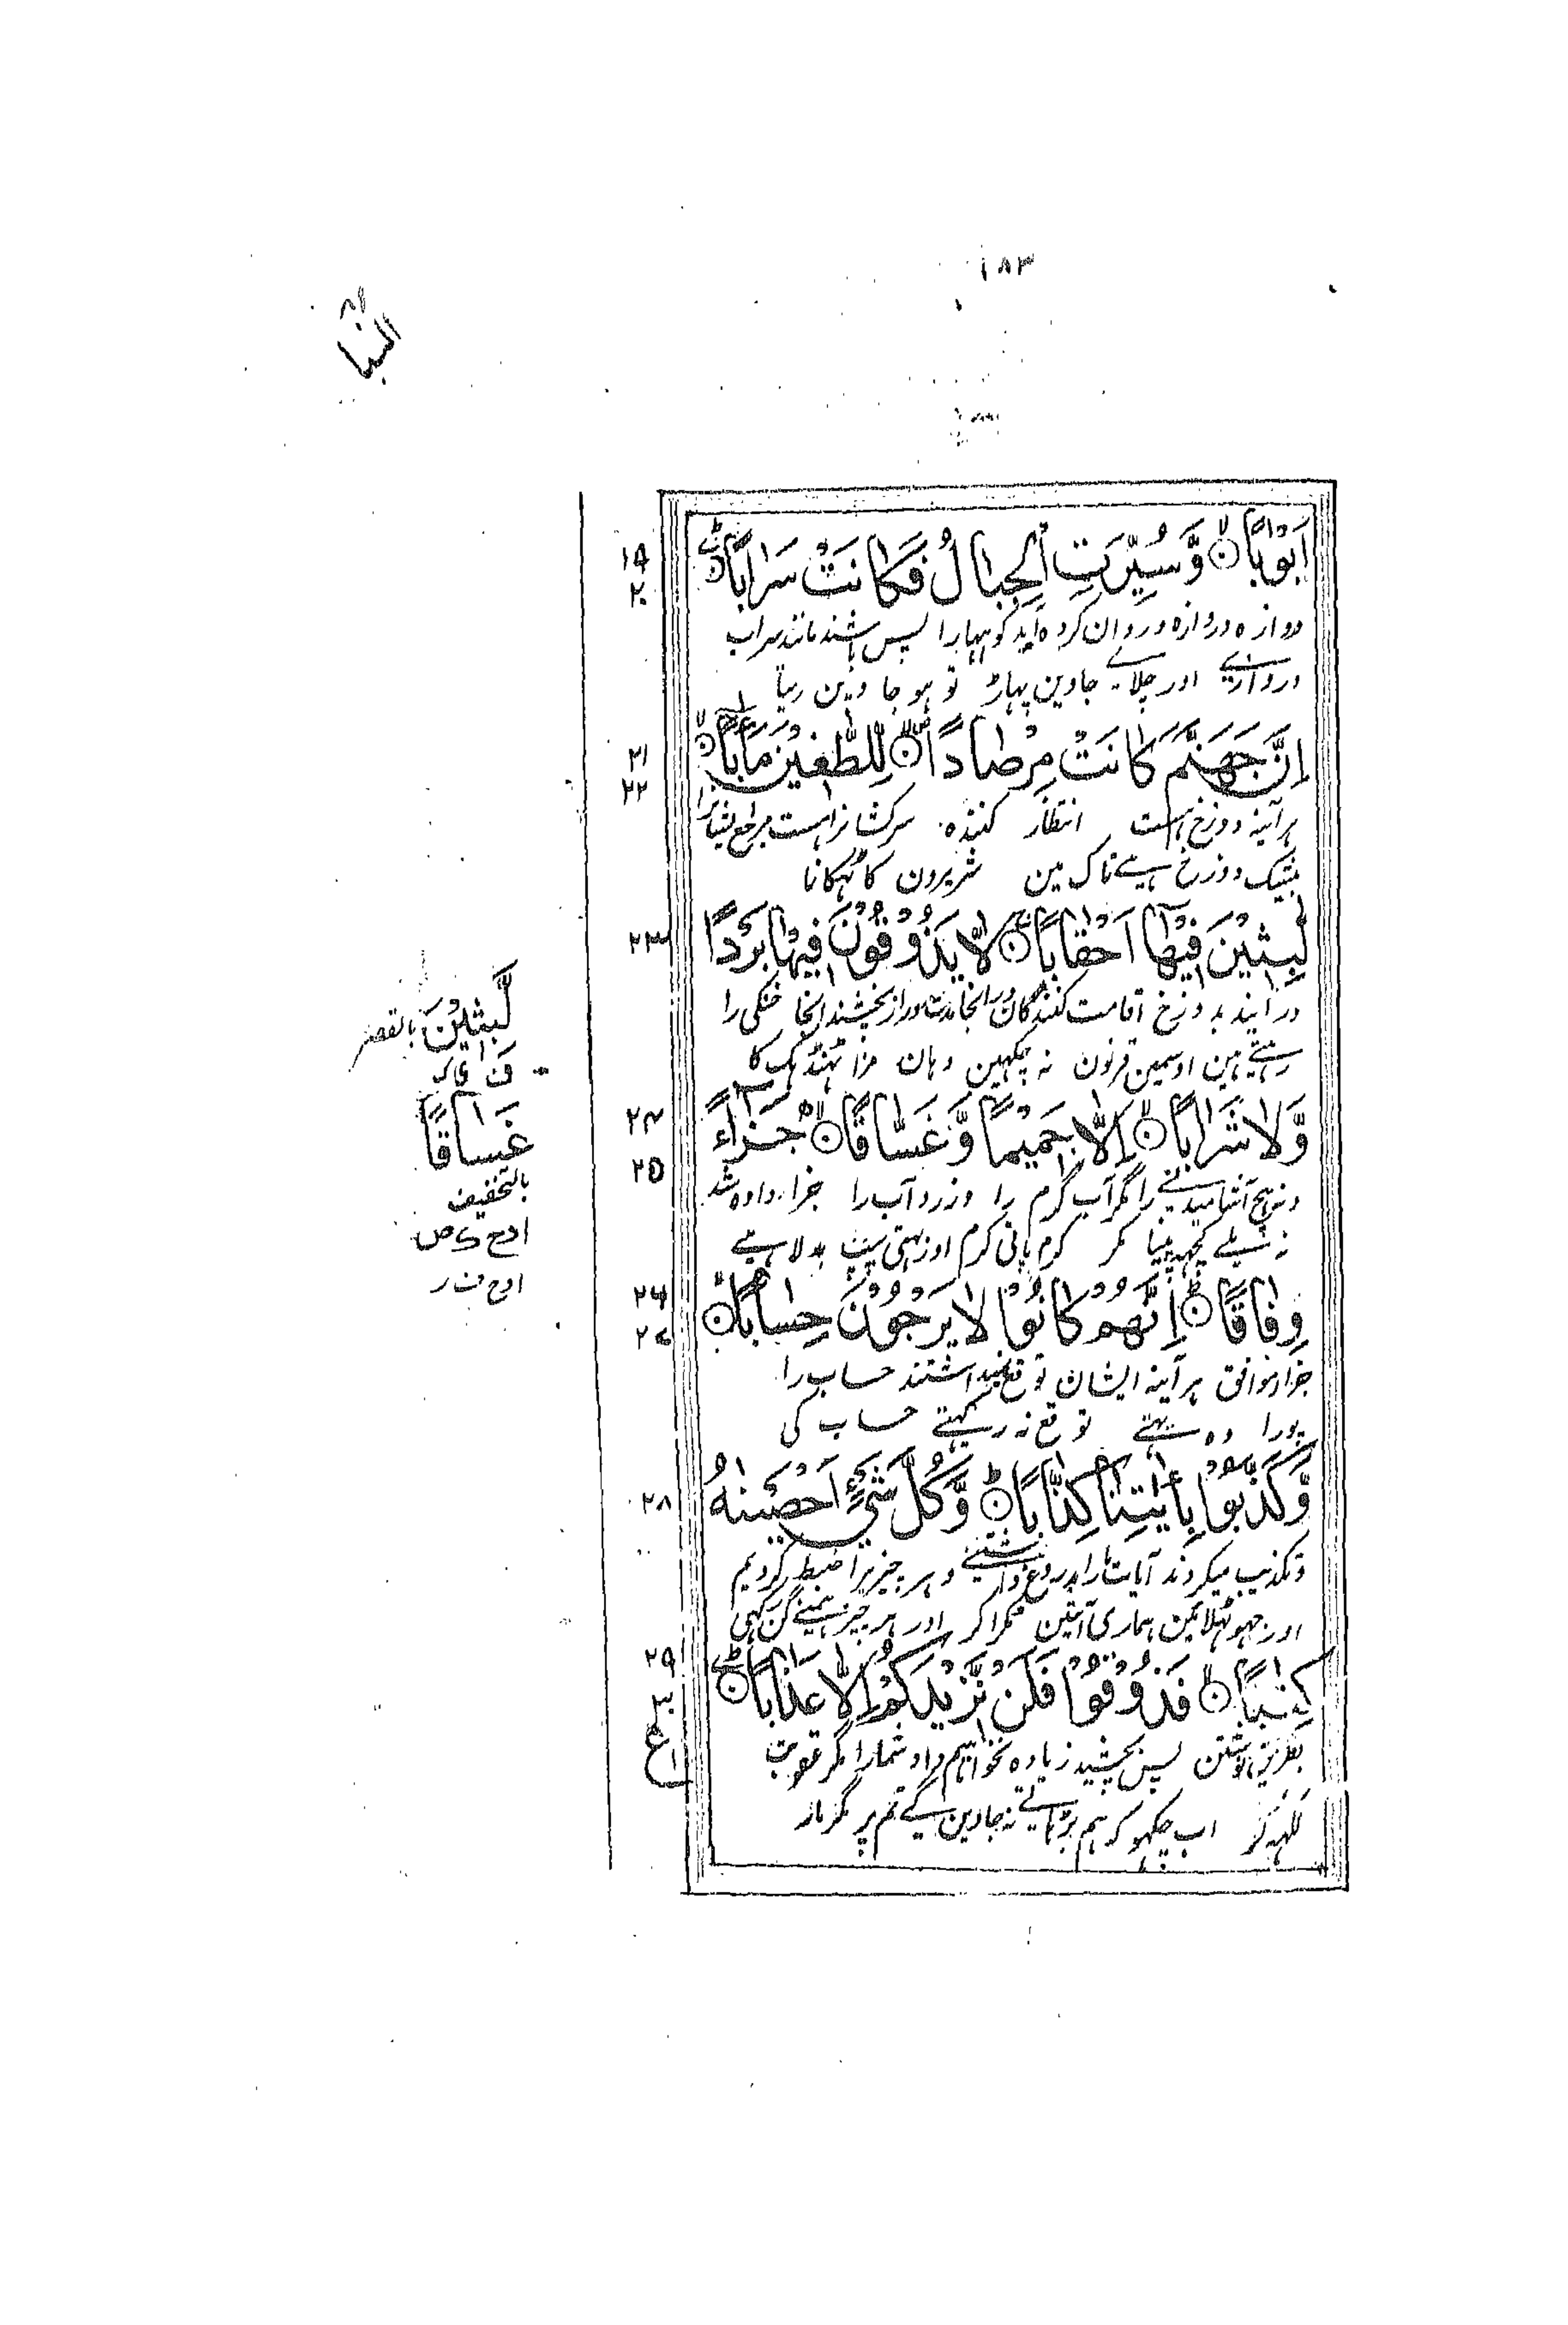 ١٨٣
النبا
اَبْوَابًا ۙ وَّسُيِّرَتِ الْجِبَالُ فَكَانَتْ سَرَابًا ؕ
١٩
٢٠
دروازه دروازه و روان کرده آید کوهها را پس باشند مانند سراب
دروازے اور چلاے جاوین پہاڑ تو ہو جاوین ریتا
اِنَّ جَهَنَّمَ كَانَتْ مِرْصَادًا ۙ لِّلطّٰغِيْنَ مَاٰبًا ۙ
٢١
٢٢
هر آینه دوزخ هست انتظار کننده سرکشانرا هست مرجع
بیشک دوزخ ہے تاک مین شریرون کا ٹہکانا
لّٰبِثِيْنَ فِيْهَآ اَحْقَابًا ۚ لَا يَذُوْقُوْنَ فِيْهَا بَرْدًا
٢٣
در آیند بدوزخ اقامت کنندگان در انجا خنکی را
رہتے ہین اوسمین قرنون نہ چکہین وہان مزا ٹہنڈک کا
وَّلَا شَرَابًا ۙ اِلَّا حَمِيْمًا وَّغَسَّاقًا ۙ جَزَآءً
٢٤
٢٥
و نه هیچ آشامیدنے را مگر آب گرم را و زرد آب را جزا داده شد
نہ ملے کچہہ پینا مگر گرم پانی گرم اور بہتی پیپ بدلا ہے
وِّفَاقًا ؕ اِنَّهُمْ كَانُوْا لَا يَرْجُوْنَ حِسَابًا ۙ
٢٦
٢٧
جزاء موافق هر آینه ایشان توقع نمیداشتند حساب را
پورا وہ تہے توقع نہ رکہتے حساب کی
وَّكَذَّبُوْا بِاٰيٰتِنَا كِذَّابًا ؕ وَكُلَّ شَيْءٍ اَحْصَيْنٰهُ
٢٨
و تکذیب میکردند آیات مارا و هر چیزیرا ضبط کردیم
اور جہوٹہلائین ہماری آیتین مکرا کر اور ہر چیز ہمنے گن رکہی
كِتٰبًا ۙ فَذُوْقُوْا فَلَنْ نَّزِيْدَكُمْ اِلَّا عَذَابًا ؕ
٢٩
٣٠
ع ١
بطریق نوشتن پس بچشید زیاده نخواهیم داد شمارا مگر عقوبت
لکہہ کر اب چکہو کہ ہم بڑہاتے نہ جاوین گے تم پر مگر مار
لَّبِثِيْنَ بالقصر
غَسَاقًا
بالتخفیف